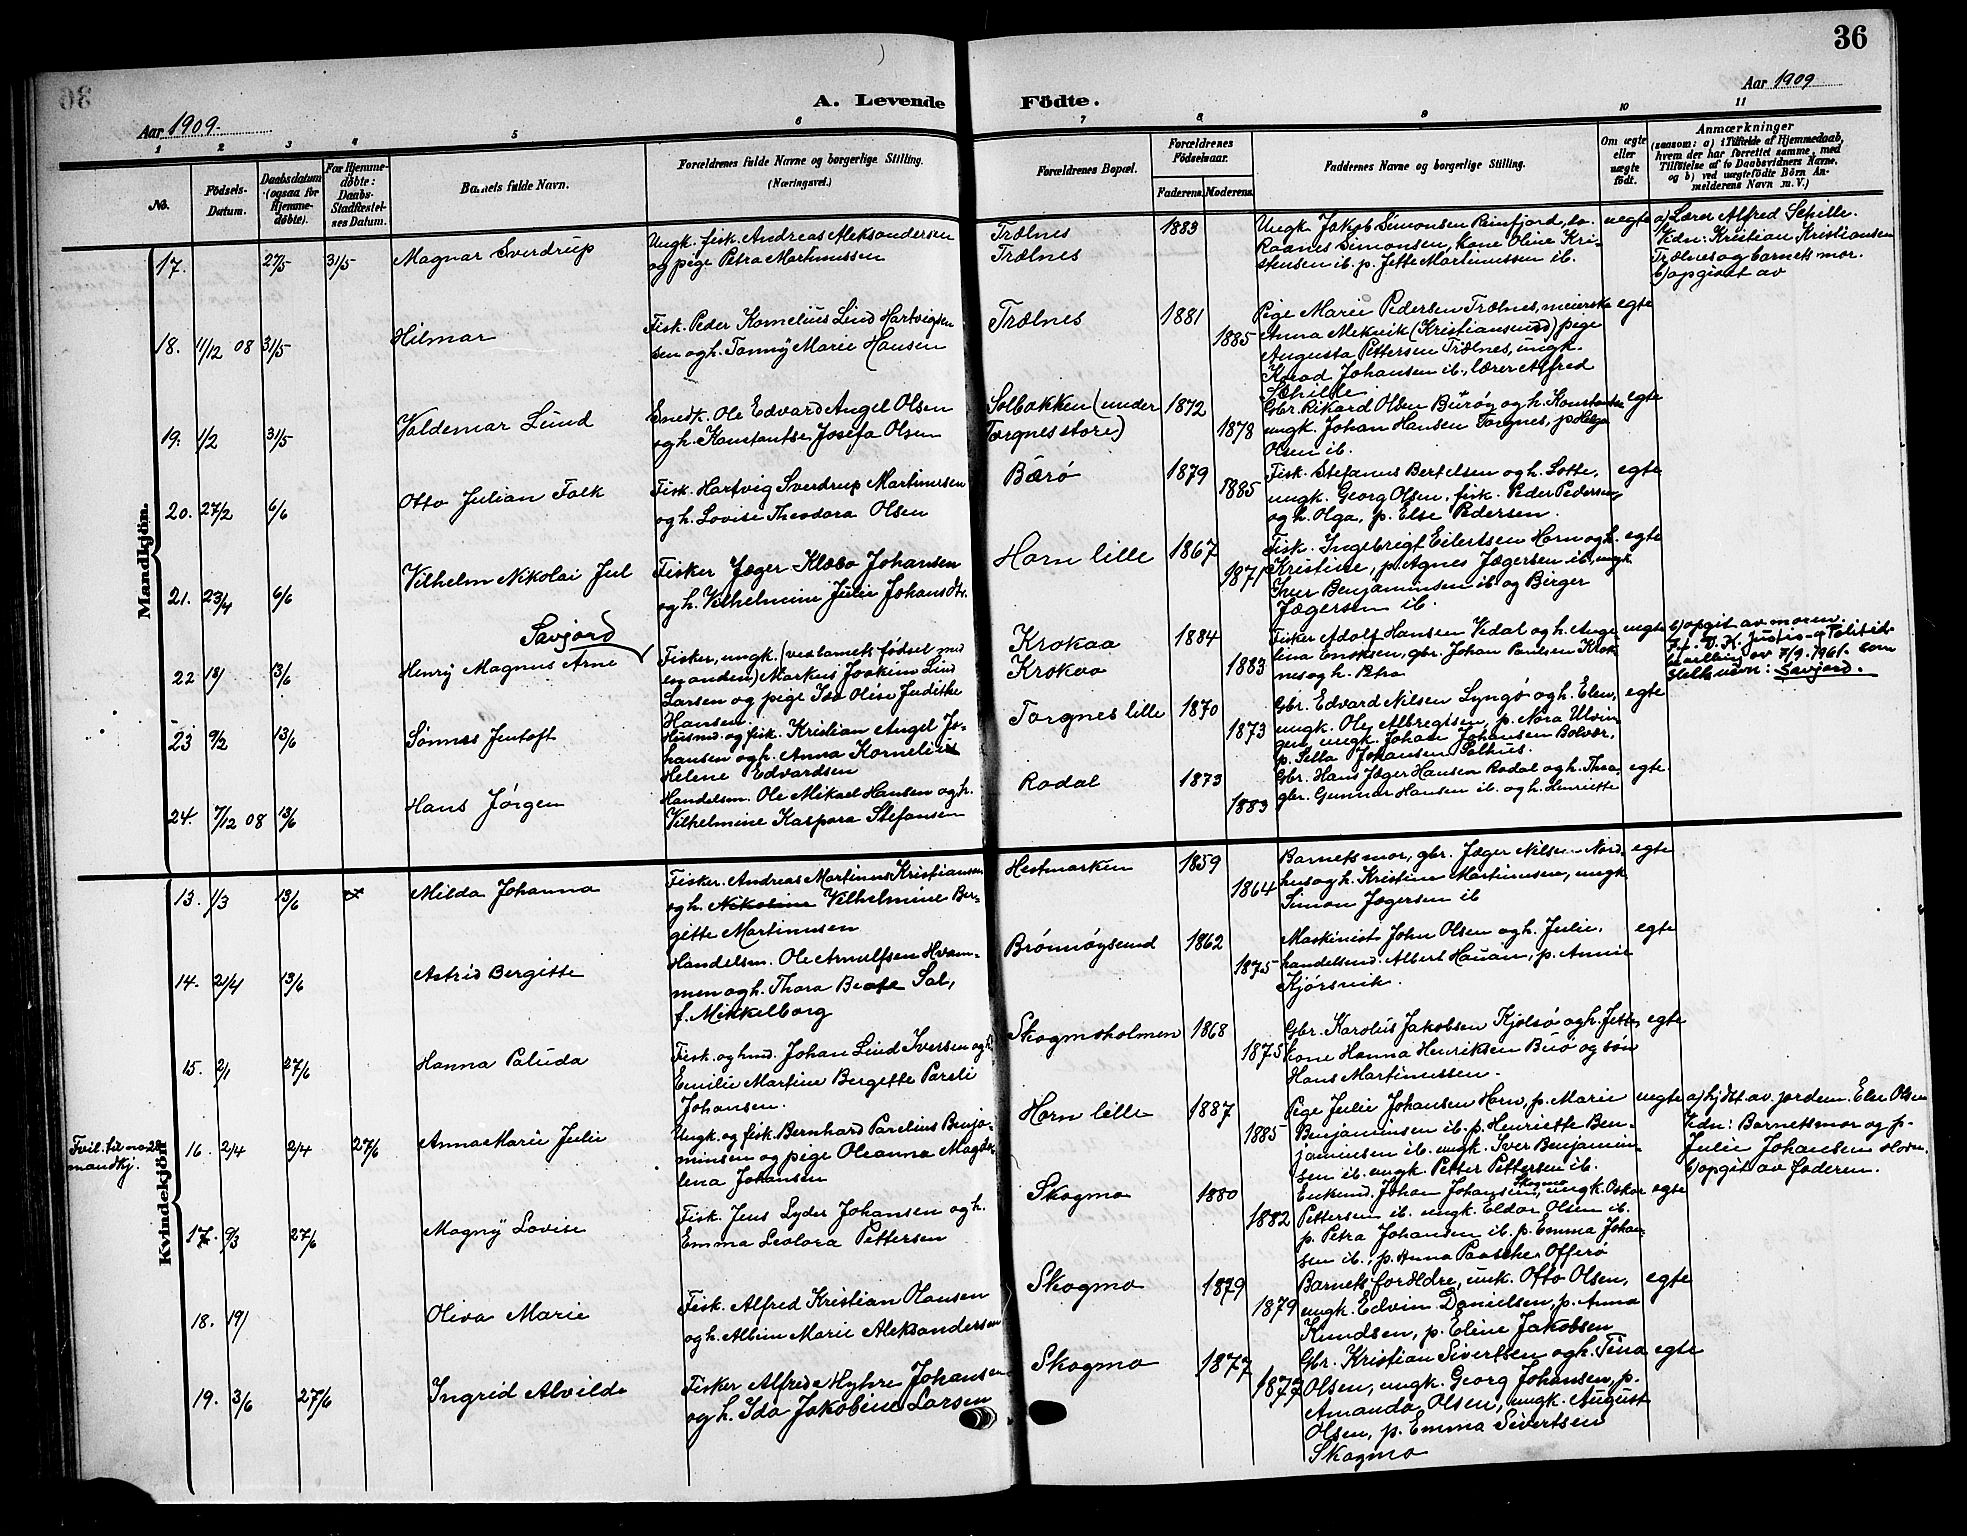 36
A. Levende Födte.
Aar 1909.
Aar 1909
1 2 3 4 5 6 7 8 9 10 11
No.
Födsels-Datum.
Daabsdatum (ogsaa for Hjemmedöbte).
For Hjemmedöbte: Daabs-Stadfæstelses Datum.
Barnets fulde Navn.
Forældrenes fulde Navne og borgerlige Stilling.
(Næringsvei.)
Forældrenes Bopæl.
Forældrenes Födselsaar.
Faderens. Moderens.
Faddernes Navne og borgerlige Stilling.
Om ægte eller uægte födt.
Anmærkninger
(saasom: a) i Tilfælde af Hjemmedaab, hvem der har forrettet samme, med Tilföielse af to Daabsvidners Navne, og b) ved uægtefödte Börn Anmelderens Navn m. V.)
Mandkjön.
17. 27/5 31/5 Magnar Sverdrup
Ungk. fisk. Andreas Aleksandersen
og pige Petra Martinussen
Trælnes
Trælnes
1883
Ungk. Jakob Simonsen Reinfjord,
Raanes Simonsen, kone Oline Kri-
stensen ib. p. Jette Martinussen ib.
uegte
a) Lærer Alfred Schille.
Vidn: Kristian Kristiansen
Trælnes og barnets mor.
b) opgivet av
18. 11/2 08 31/5 Hilmar
Fisk. Peder Kornelius Lind Hartvigsen
sen og h. Tonny Marie Hansen
Trælnes
1881 1885
Pige Marie Pedersen Trælnes, meierske
Anna Mekvik (Kristiansund) pige
Augusta Pettersen Trælnes, ungk.
Konrad Johansen ib., lærer Alfred
Schille
egte
19. 1/2 31/5 Valdemar Lund
Snedk. Ole Edvard Angel Olsen
og h. Konstantse Josefa Olsen
Solbakken (under
Torgnes store)
1872 1878
Gbr. Rikard Olsen Burøy og h. Konstantse
ungk. Johan Hansen Torgnes, p. Helga
Olsen ib.
egte
20. 27/2 6/6 Otto Julian Falk
Fisk. Hartvig Sverdrup Martinussen
og h. Lovise Theodora Olsen
Bærø
1879 1885
Fisk. Stefanus Bertelsen og h. Lotte,
ungk. Georg Olsen, fisk. Peder Pedersen
og h. Olga, p. Else Pedersen.
egte
21. 23/4 6/6 Vilhelm Nikolai Jul
Fisker Jæger Klæbo Johansen
og h. Vilhelmine Julie Johansdtr.
Horn lille
1867 1871
Fisk. Ingebrigt Eilertsen Horn og h.
Kristine, p. Agnes Jægersen ib., ungk.
Iver Benjaminsen ib og Birger
Jægersen ib.
egte
Savjord
22 18/ 13/6 Henry Magnus Arne
Fisker, ungk. (ved barnets fødsel med
en anden) Markus Joakim Lind
Larsen og pige Ida Olise Judithe
Hansen.
Krokaa
Krokaa
1884 1883
Fisker Adolf Hansen Vedal og h. Ange
lina Enoksen, gbr. Johan Paulsen Krok-
nes og h. Petra
uegte
b) opgit av moren.
Justis- og Politid
av 7/9.1961. som
slektsnavn: Savjord.
23 9/2 13/6 Sónnes Jentoft
Husmd. og fisk. Kristian Angel Jo-
hansen og h. Anna Kornelie
Helene Edvardsen
Torgnes lille
1870 1873
Gbr. Edvard Nilsen Lyngø og h. Elen,
ungk. Ole Albregtsen, p. Nora Ulvin
gen, ungk. Johan Johansen Bolvær,
p. Setta Johansen Salhus.
egte
24. 7/12 08 13/6 Hans Jørgen
Handelsm. Ole Mikael Hansen og h.
Vilhelmine Kaspara Stefansen
Rodal
1873 1883
Gbr. Hans Jæger Hansen Rodal og h. Thea,
gbr. Gunnar Hansen ib. og h. Henriette
egte
Kvindekjön
13. 1/3 13/6 Milda Johanna
Fisker. Andreas Martinus Kristiansen
og h. Nikoline Vilhelmine Ber-
gitte Martinusen
Hestmarken
1859 1864
Barnets mor, gbr. Jæger Nilsen Nord
hus og h. Kristine Martinusen, ungk.
Simon Jægersen ib
egte
14. 21/4 13/6 Astrid Bergitte
Handelsm. Ole Arnulfsen Hvam-
men og h. Thora Beate Sal,
f. Mikkelborg
Brónnóysund
1862 1875
Maskinist John Olsen og h. Julie,
handelsmd. Albert Hauan, p. Annie
Kjørsvik.
egte
15. 2/1 27/6 Hanna Paluda
Fisk. og hmd. Johan Lind Iversen og h.
Emilie Martine Bergette Pareli
Johansen.
Skogmoholmen
1868 1875
Gbr. Karolus Jakobsen Kjølsø og h. Jette,
kone Hanna Henriksen Buø og søn
Hans Martinussen.
egte
Tvil. til no 22
mandkj.
16. 2/4 2/4 27/6 Anna Marie Julie
Ungk. og fisk. Bernhard Parelius Benja-
minsen og pige Oleanna Magda-
lena Johansen
Horn lille
1887 1885
Pige Julie Johansen Horn, p. Marie
Benjaminsen ib. p. Henriette Ben-
jaminsen ib. ungk. Iver Benjamin-
sen ib. ungk. Petter Pettersen ib.
uegte
a) hjdt av jordem. Else Olsen
Vidn: Barnets mor og p.
Julie Johansen Horn.
b) opgit av faderen.
17. 9/3 27/6 Magny Lovise
Fisk. Jens Lyder Johansen og h.
Emma Leolora Pettersen
Skogmo
1880 1882
Enkemd. Johan Johansen, Skogmo, ungk. Oskar
Pettersen ib. ungk. Eldor Olsen ib.
p. Petra Johansen ib. p. Emma Johan-
sen ib., p. Anna Paasche Offerø
egte
18. 19/ Oliva Marie
Fisk. Alfred Kristian Hansen
og h. Albine Marie Aleksandersen
Skogmo
1879 1879
Barnets forældre, unk. Otto Olsen,
ungk. Edvin Danielsen, p. Anna
Knudsen, p. Eline Jakobsen
egte
19. 3/6 27/6 Ingrid Alvilde
Fisker Alfred Myhre Johansen
og h. Ida Jakobine Larsen
Skogmo
1877 1877
Gbr. Kristian Sivertsen og h. Tina
Olsen, ungk. Georg Johansen, p.
Amanda Olsen, ungk. August
Olsen, p. Emma Sivertsen
Skogmo
egte